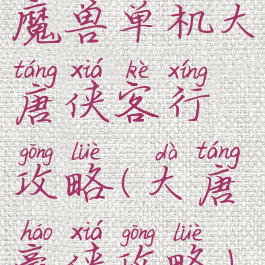 魔兽单机大
táng xiá kè xíng
唐侠客行
gōng lüè dà táng
攻略(大唐
háo xiá gōng lüè
豪侠攻略)